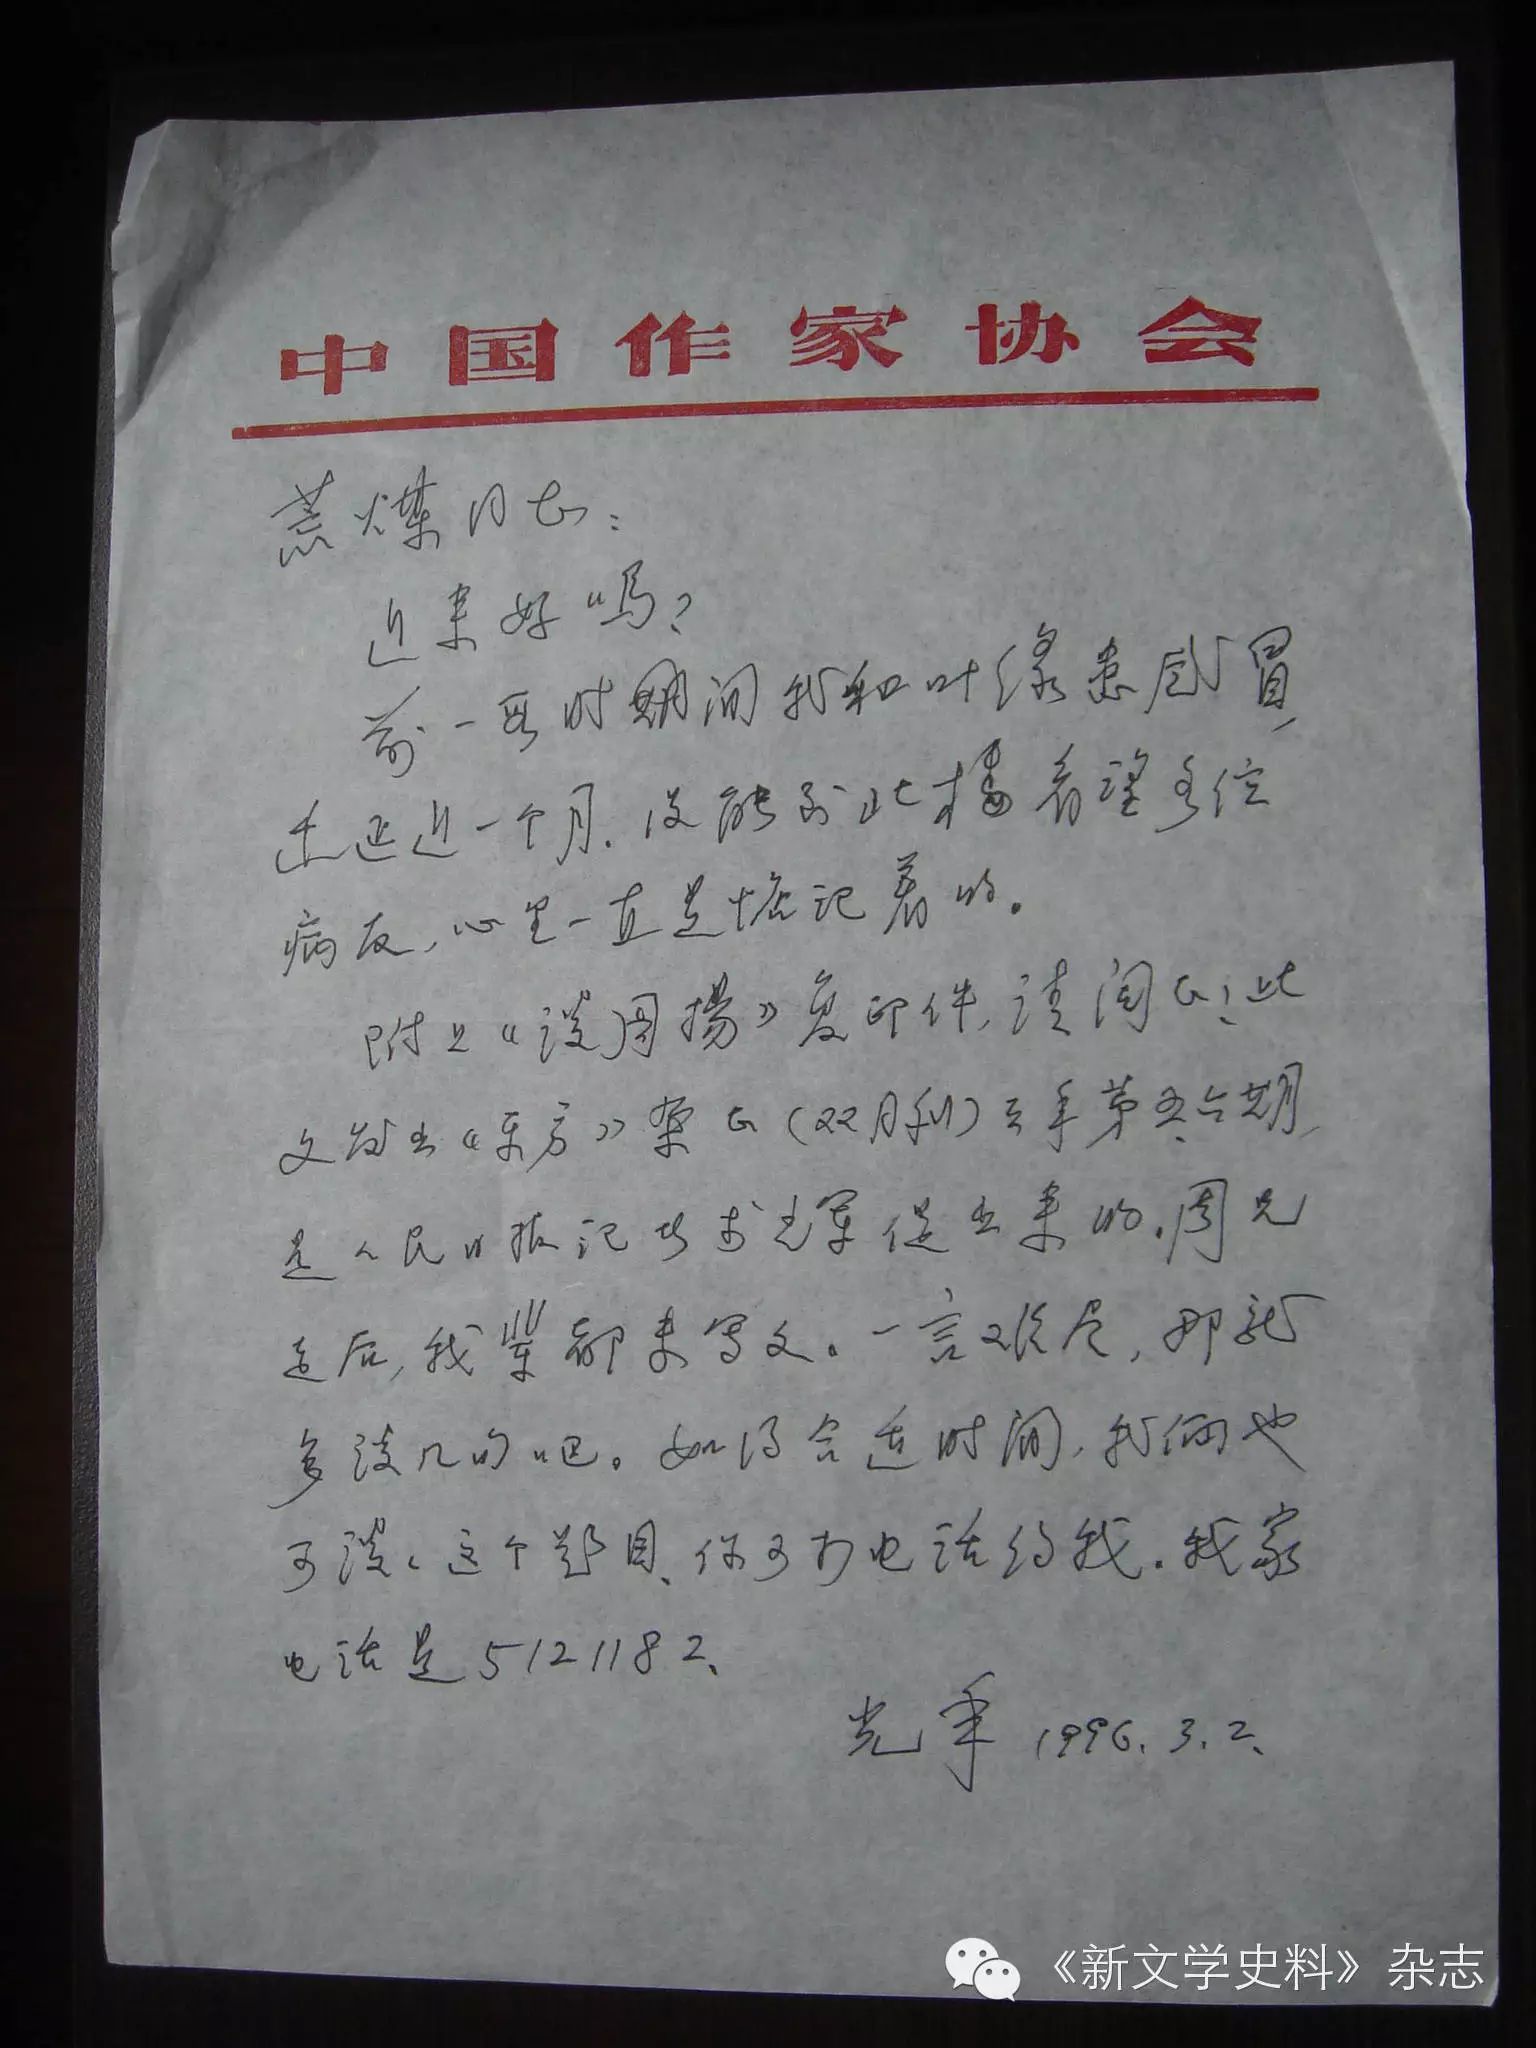 中国作家协会
荒煤同志：
近来好吗？
前一段时期间我和叶绿患感冒，
迁延近一个月。没能到北楼看望多位
病友，心里一直是惦记着的。
附上《谈周扬》复印件，请阅正；此
文发出《东方》杂志（双月刊）去年第五、六期，
是人民日报记者李光军促出来的。周兄
走后，我辈都未写文。一言难尽，那就
多谈几句吧。如得合适时间，我俩也
可谈谈这个题目、你可打电话给我。我家
电话是5121182、
光年 1996.3.2、
《新文学史料》杂志